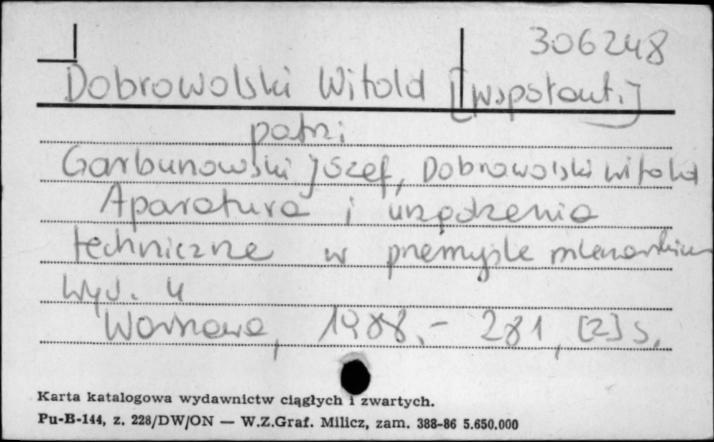 306248
Dobrowolski Witold [współaut.]
patrz:
Garbunowski Józef, Dobrowolski Witold
Aparatura i urządzenia
techniczne w przemyśle mleczarskim
Wyd. 4
Warszawa, 1988.- 281, [2] s.
Karta katalogowa wydawnictw ciągłych i zwartych.
Pu-B-144, z. 228/DW/ON — W.Z.Graf. Milicz, zam. 388-86 5.650.000